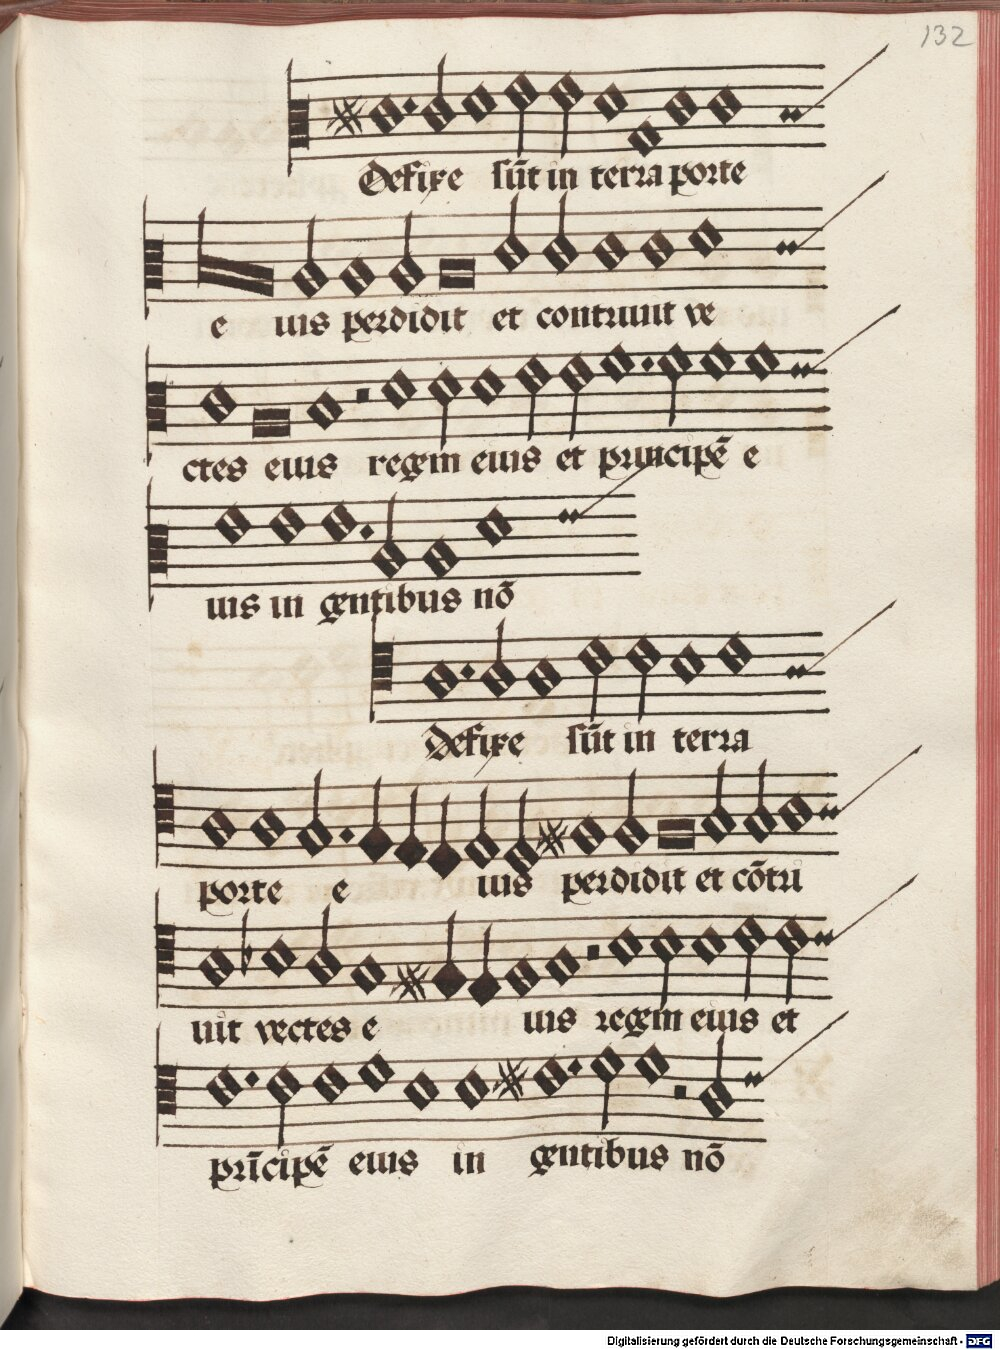 132
Defixe sūt in terra porte
e ius perdidit et contriuit ve
ctes eius regem eius et principē e
ius in gentibus nō
Defixe sūt in terra
porte e ius perdidit et cōtri
uit vectes e ius regem eius et
prīcipē eius in gentibus nō
Digitalisierung gefördert durch die Deutsche Forschungsgemeinschaft - DFG